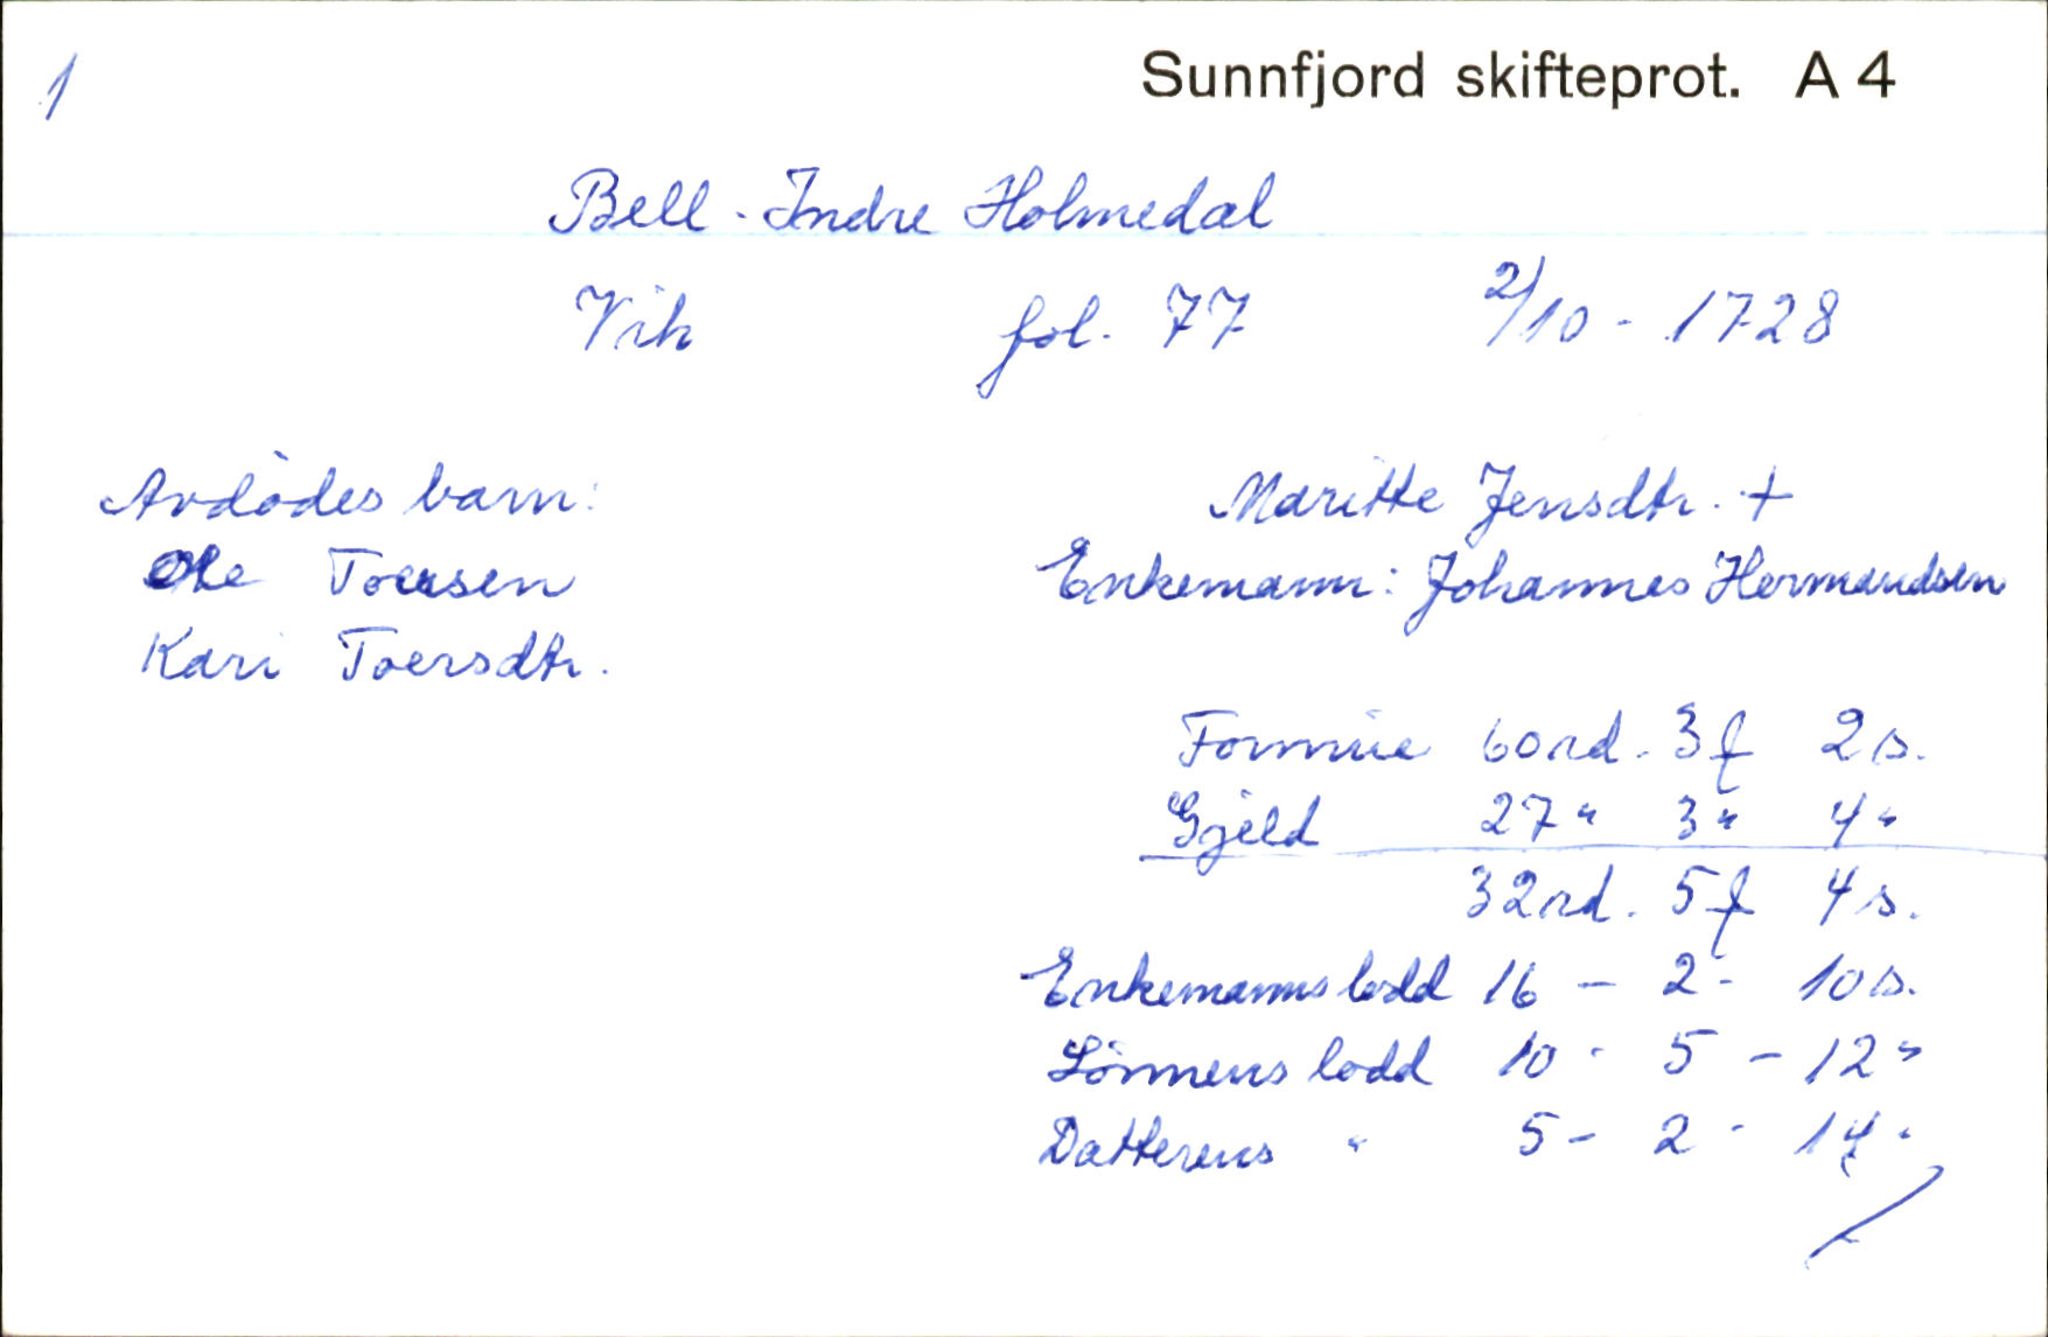 1
Sunnfjord skifteprot. A 4
Bell - Indre Holmedal
Vik fol. 77 2/10 - 1728
Avdødes barn:
Ole Toersen
Kari Toersdtr.
Maritte Jensdtr. +
Enkemann: Johannes Hermandsen
Formue 60 rd. 3 f 2 s.
Gjeld 27 " 3 " 4 "
32 rd. 5 f 4 s.
Enkemanns lodd 16 - 2 - 10 s.
Sønnens lodd 10 - 5 - 12 "
Datterens " 5 - 2 - 14 "